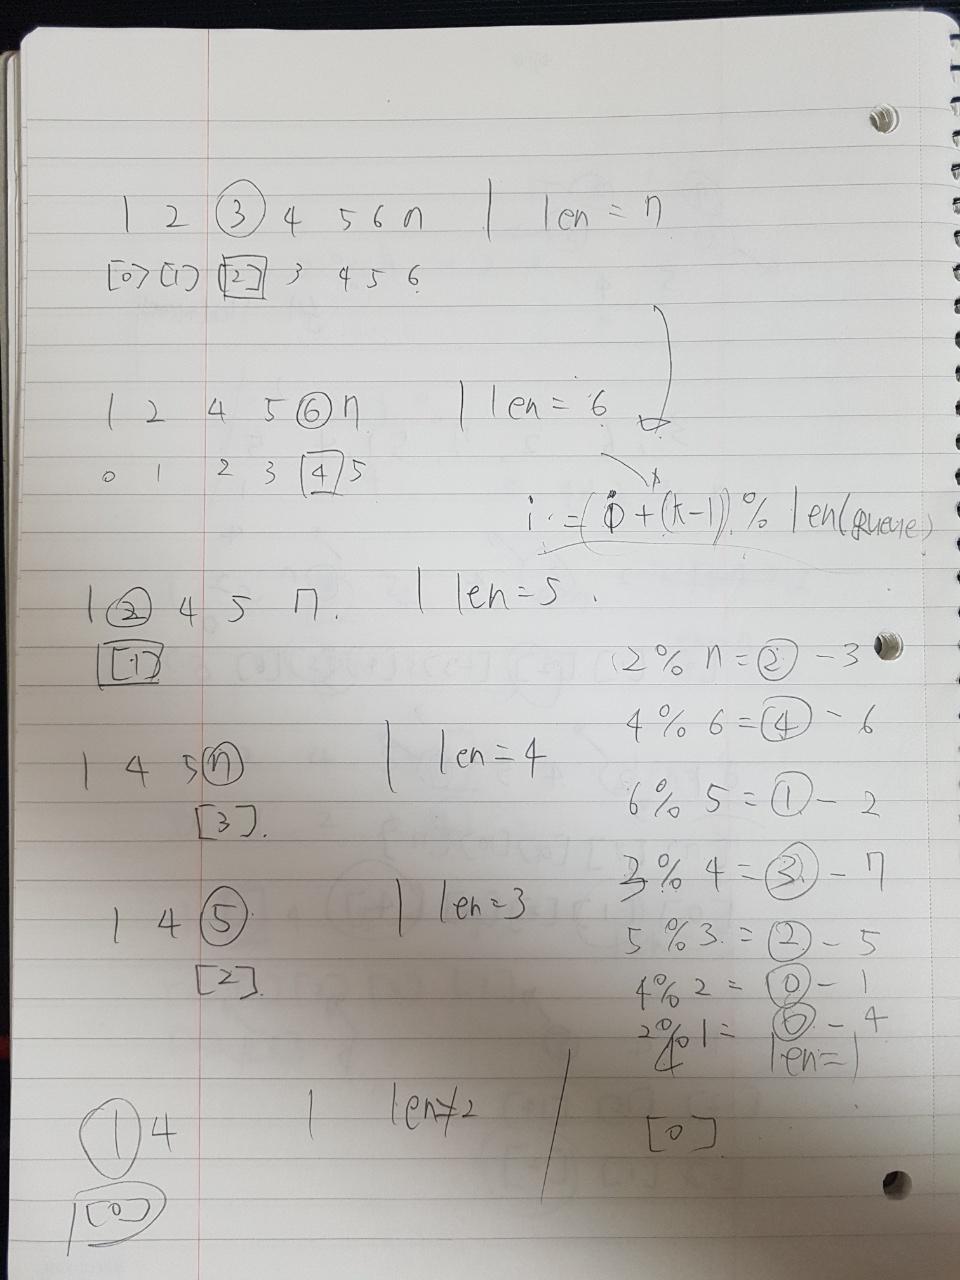 1 2 3 4 5 6 7 | len = 7
[0] [1] [2] 3 4 5 6
1 2 4 5 6 7 | len = 6
0 1 2 3 4 5
i = (i + (k-1)) % len(queue)
1 2 4 5 7. | len = 5.
[1]
2 % 7 = 2 - 3
4 % 6 = 4 - 6
1 4 5 7 | len = 4
6 % 5 = 1 - 2
[3].
3 % 4 = 3 - 7
1 4 5 | len = 3
5 % 3 = 2 - 5
[2].
4 % 2 = 0 - 1
2 % 1 = 0 - 4
4 len = 1
1 4 | len = 2
[0]
[0]